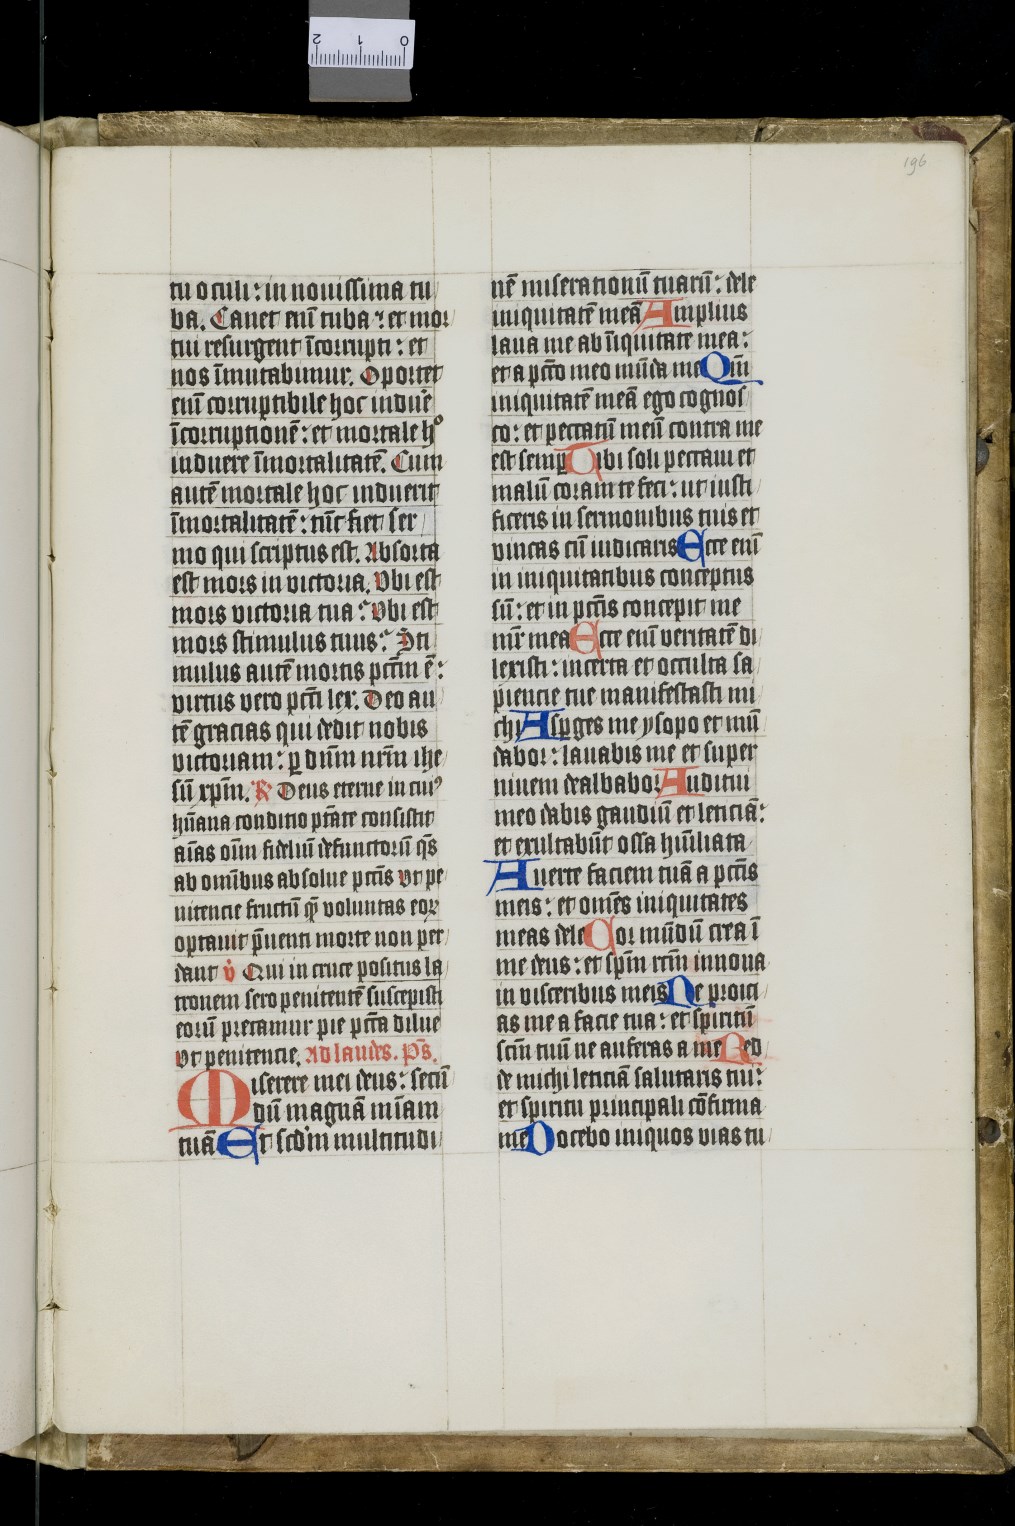 196
tu oculi: in nouissima tu
ba. Canet enī tuba ⁊ et mor
tui resurgent īcorrupti: et
nos īmutabimur. Oportet
enī corruptibile hoc induē
īcorruptionē: et mortale hͦ
induere īmortalitatē. Cum
autē mortale hoc induerit
īmortalitatē: tūc fiet ser
mo qui scriptus est. Absorta
est mors in victoria. Vbi est
mors victoria tua: Vbi est
mors stimulus tuus: Sti
mulus autē mortis pctm̄ ē:
virtus vero pcti lex. Deo au
tē gracias qui dedit nobis
victoriam: ꝑ dn̄m nr̄m ihe
sū xpm̄. R̷ Deus eterne in cuiꝰ
hūana conditio ptāte consistit
aīas oīm fideliū defunctorū q̄s
ab omībus absolue pctīs vt pe
nitencie fructū q̄ voluntas eoꝝ
optauit p̄uenti morte non per
dant v̇ Qui in cruce positus la
tronem sero penitentē suscepisti
eorū precamur pie pctā dilue
vt penitencie. Ad laudes. Ps̄.
Miserere mei deus: secū
dū magnā mīam
tuā Et scdm̄ multitudi
nē miserationū tuarū: dele
iniquitatē meā Amplius
laua me ab īiquitate mea:
et a pctō meo mūda me Qm̄
iniquitatē meā ego cognos
co: et peccatū meū contra me
est semꝑ Tibi soli peccaui et
malū coram te feci: ut iusti
ficeris in sermonibus tuis et
vincas cū iudicaris Ecce enī
in iniquitatibus conceptus
sū: et in pctīs concepit me
mr̄ mea Ecce enī veritatē di
lexisti: incerta et occulta sa
piencie tue manifestasti mi
chi Asꝑges me ysopo et mū
dabor: lauabis me et super
niuem dealbabor Auditui
meo dabis gaudiū et leticiā:
et exultabūt ossa hūiliata
Auerte faciem tuā a pctīs
meis: et omēs iniquitates
meas dele Cor mūdū crea ī
me deus: et spm̄ rcm̄ innoua
in visceribus meis Ne proici
as me a facie tua: et spiritū
scm̄ tuū ne auferas a me Red
de michi leticiā salutaris tui:
et spiritu principali cōfirma
me Docebo iniquos vias tu